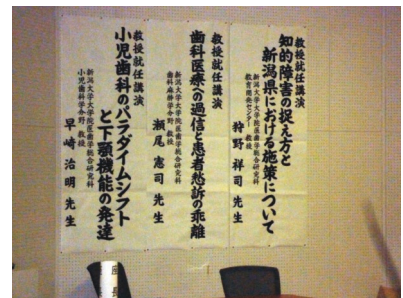 教授就任講演
知的障害の捉え方と
新潟県における施策について
新潟大学大学院医歯学総合研究科
教育開発センター 教授
狩野 祥司 先生
教授就任講演
歯科医療への過信と患者愁訴の乖離
新潟大学大学院医歯学総合研究科
歯科麻酔学分野 教授
瀬尾 憲司 先生
教授就任講演
小児歯科のパラダイムシフト
と下顎機能の発達
新潟大学大学院医歯学総合研究科
小児歯科学分野 教授
早崎 治明 先生
座長